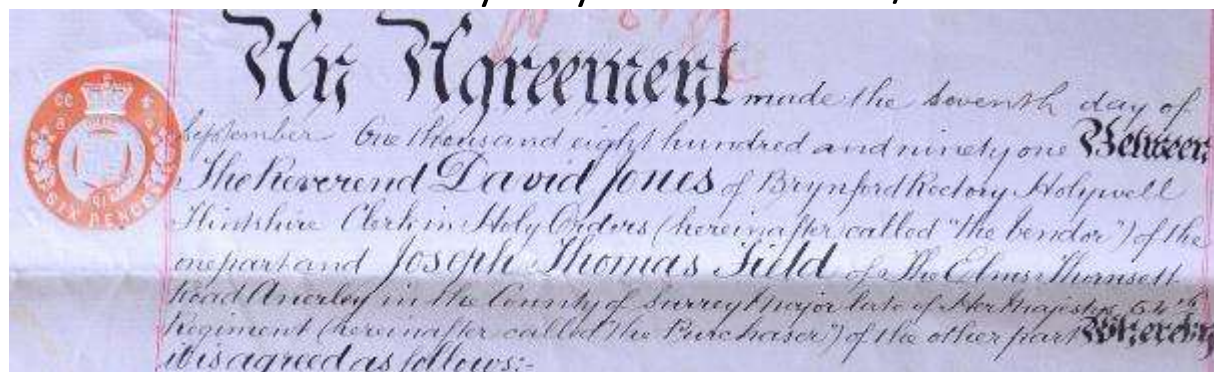 An Agreement made the seventh day of
September One thousand eight hundred and ninety one Between
The Reverend David Jones of Brynford Rectory Holywell
Flintshire Clerk in Holy Orders (hereinafter called "the Vendor") of the
one part and Joseph Thomas Field of The Elms Thornsett
Road Anerley in the County of Surrey Major late of Her Majestys 64th
Regiment (hereinafter called "the Purchaser") of the other part Whereby
it is agreed as follows:-
SIX PENCE